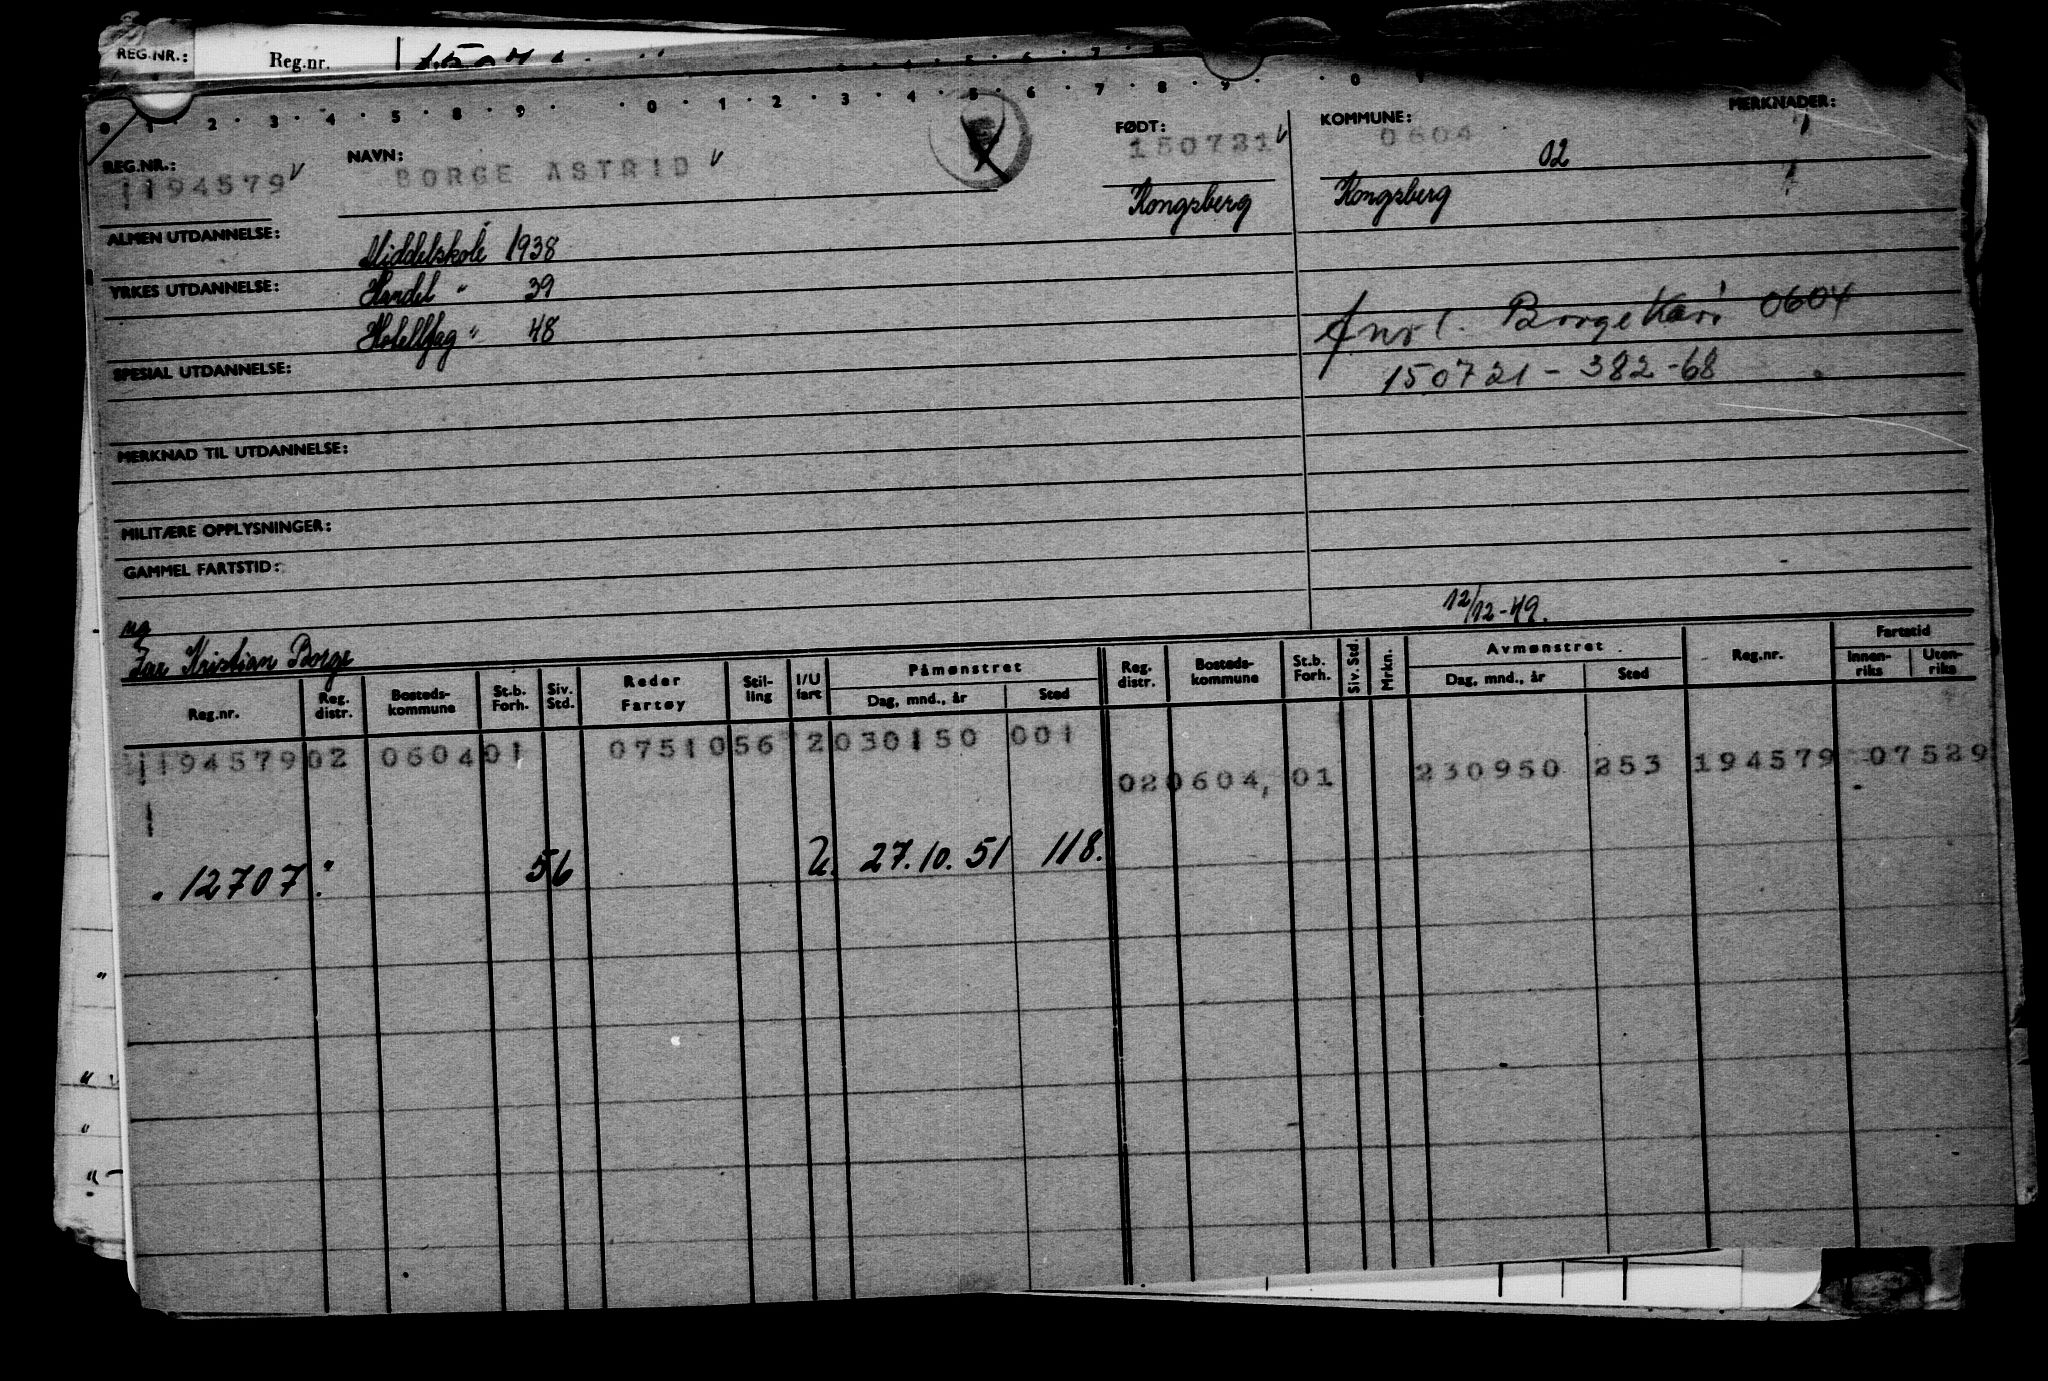 REG.NR.: Reg.nr.
0 1 2 3 4 5 8 9 0 1 2 3 4 5 6 7 8 9 0
REG.NR.: NAVN: FØDT: KOMMUNE: MERKNADER:
194579 BORGE ASTRID 150721 0604 02
Kongsberg Kongsberg
ALMEN UTDANNELSE: Middelskole 1938
YRKES UTDANNELSE: Handel " 39
Hotellfag " 48
Borge Kari 0604
SPESIAL UTDANNELSE:
150721 - 382 - 68
MERKNAD TIL UTDANNELSE:
MILITÆRE OPPLYSNINGER:
GAMMEL FARTSTID:
12/12-49.
ug
Far Kristian Borge
Reg.nr. Reg. distr. Bosteds-kommune St.b. Forh. Siv. Std. Reder Fartøy Stil-ling I/U fart Påmønstret Dag, mnd., år Sted Reg. distr. Bosteds-kommune St.b. Forh. Siv. Std. Mrkn. Avmønstret Dag, mnd., år Sted Reg.nr. Fartstid Innen-riks Uten-riks
194579 02 0604 01 07510 56 2 030150 001
02 0604, 01 230950 253 194579 07529
12707 " 56 2. 27.10.51 118.